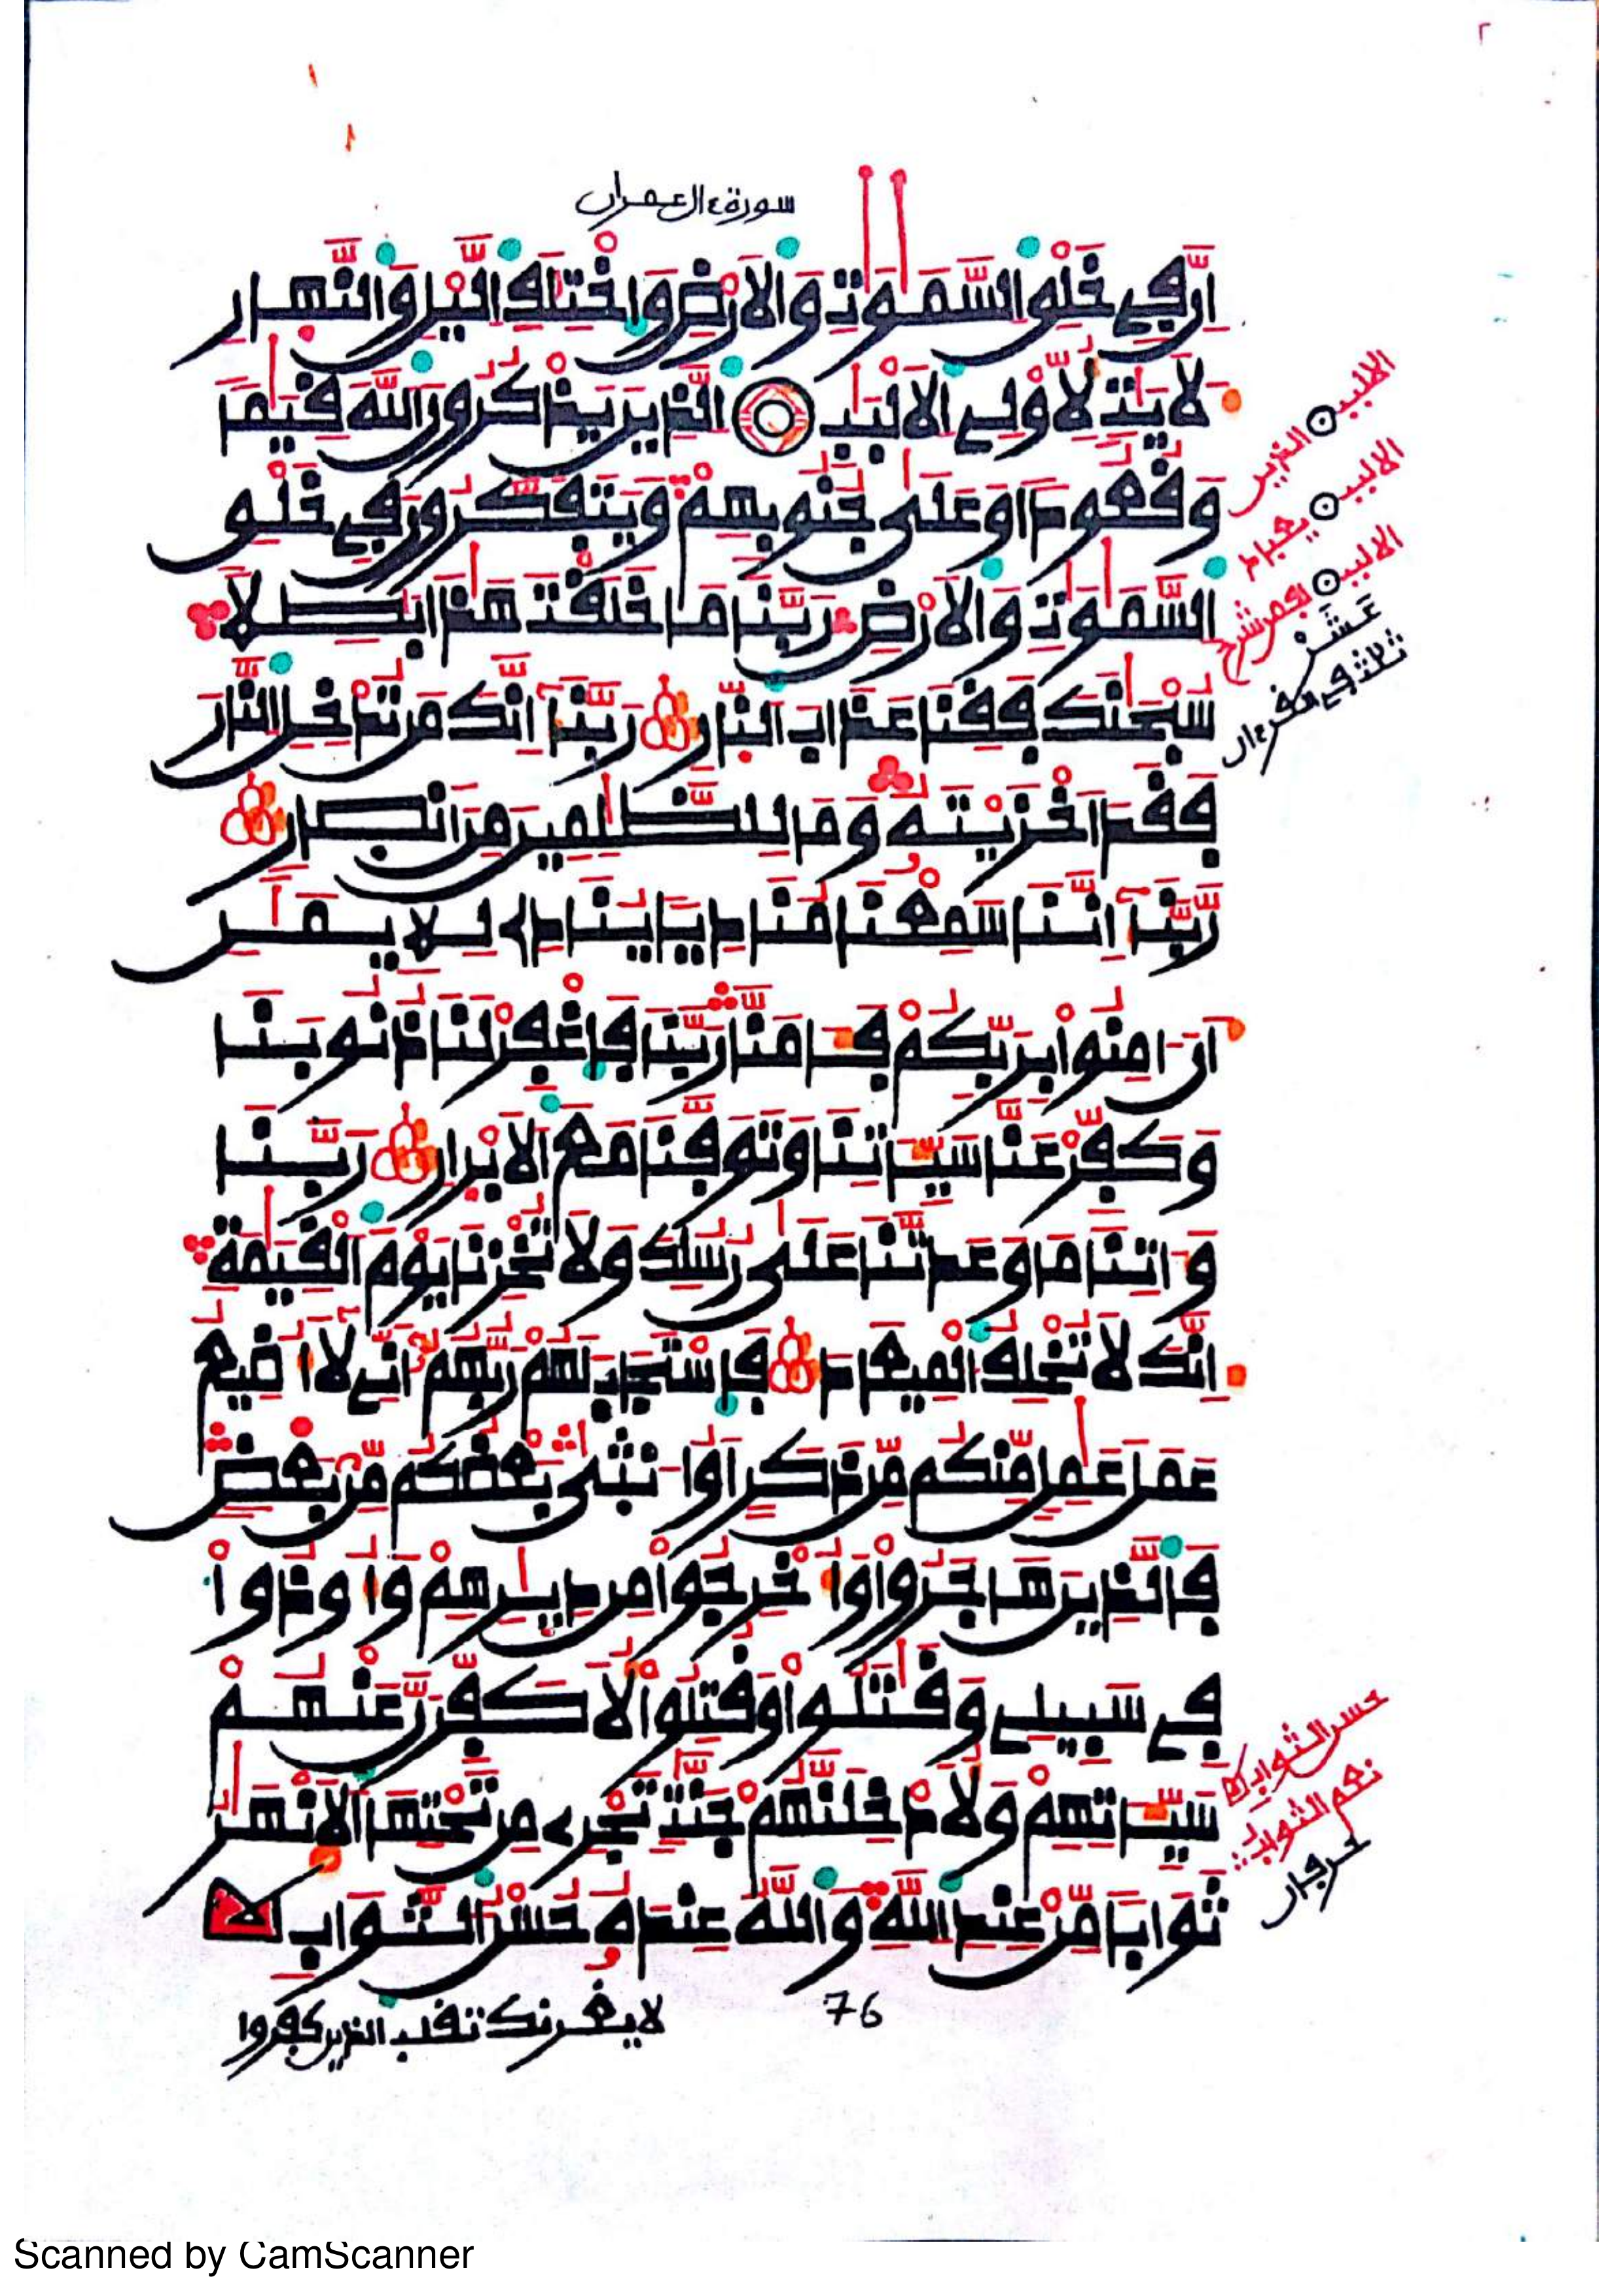 سورة ءال عمران
إِنَّ فِي خَلْقِ السَّمَٰوَٰتِ وَالْأَرْضِ وَاخْتِلَٰفِ الَّيْلِ وَالنَّهَارِ
لَأَيَٰتٍ لِّأُوْلِي الْأَلْبَٰبِ الَّذِينَ يَذْكُرُونَ اللَّهَ قِيَٰمًا
وَقُعُودًا وَعَلَىٰ جُنُوبِهِمْ وَيَتَفَكَّرُونَ فِي خَلْقِ
السَّمَٰوَٰتِ وَالْأَرْضِ رَبَّنَا مَا خَلَقْتَ هَٰذَا بَٰطِلًا
سُبْحَٰنَكَ فَقِنَا عَذَابَ النَّارِ رَبَّنَآ إِنَّكَ مَن تُدْخِلِ النَّارَ
فَقَدْ أَخْزَيْتَهُۥ وَمَا لِلظَّٰلِمِينَ مِنْ أَنصَارٍ
رَّبَّنَآ إِنَّنَا سَمِعْنَا مُنَادِيًا يُنَادِي لِلْإِيمَٰنِ
أَنْ ءَامِنُوا بِرَبِّكُمْ فَـَٔامَنَّا رَبَّنَا فَاغْفِرْ لَنَا ذُنُوبَنَا
وَكَفِّرْ عَنَّا سَيِّـَٔاتِنَا وَتَوَفَّنَا مَعَ الْأَبْرَارِ رَبَّنَا
وَءَاتِنَا مَا وَعَدتَّنَا عَلَىٰ رُسُلِكَ وَلَا تُخْزِنَا يَوْمَ الْقِيَٰمَةِ
إِنَّكَ لَا تُخْلِفُ الْمِيعَادَ فَاسْتَجَابَ لَهُمْ رَبُّهُمْ أَنِّي لَآ أُضِيعُ
عَمَلَ عَٰمِلٍ مِّنكُم مِّن ذَكَرٍ أَوْ أُنثَىٰ بَعْضُكُم مِّنْ بَعْضٍ
فَالَّذِينَ هَاجَرُوا وَأُخْرِجُوا مِن دِيَٰرِهِمْ وَأُوذُوا
فِي سَبِيلِي وَقَٰتَلُوا وَقُتِلُوا لَأُكَفِّرَنَّ عَنْهُمْ
سَيِّـَٔاتِهِمْ وَلَأُدْخِلَنَّهُمْ جَنَّٰتٍ تَجْرِي مِن تَحْتِهَا الْأَنْهَٰرُ
ثَوَابًا مِّنْ عِندِ اللَّهِ وَاللَّهُ عِندَهُۥ حُسْنُ الثَّوَابِ
76
لا يغرنك تقلب الذين كفروا
الالبب الذين
الالبب
الالبب
عشر
حسن الثواب
نعم الثواب
Scanned by CamScanner